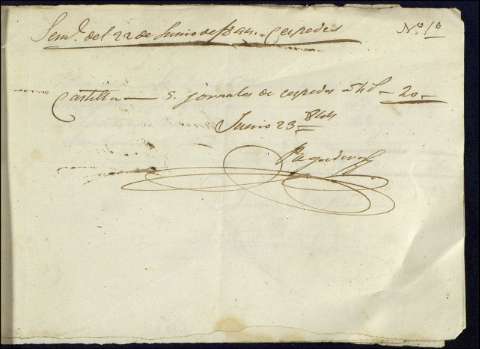 Sem.ª del 22 de Junio de 1844. Cespedes Nº 1º
Castilla — 5 jornales de cespedes á 4 rs — 20 —
Junio 23